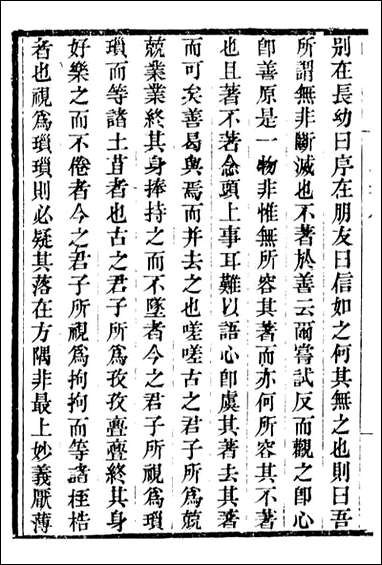 别在長幼曰序在朋友曰信如之何其無之也則曰吾
所謂無非斷滅也不著於善云爾嘗試反而觀之卽心
卽善原是一物非惟無所容其著而亦何所容其不著
也且著不著念頭上事耳難以語心卽虞其著去其著
而可矣善曷與焉而并去之也嗟嗟古之君子所爲兢
兢業業終其身捧持之而不墜者今之君子所視爲瑣
瑣而等諸土苴者也古之君子所爲孜孜亹亹終其身
好樂之而不倦者今之君子所視爲拘拘而等諸桎梏
者也視爲瑣瑣則必疑其落在方隅非最上妙義厭薄